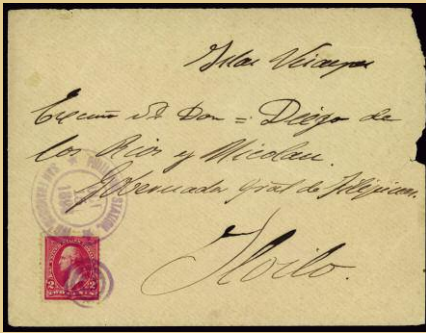 Islas Visayas
Excmo Sr Don = Diego de
los Rios y Nicolau.
Gobernador Gral de Filipinas.
Iloilo.
STATION.
SAN FRANCISCO
2 2